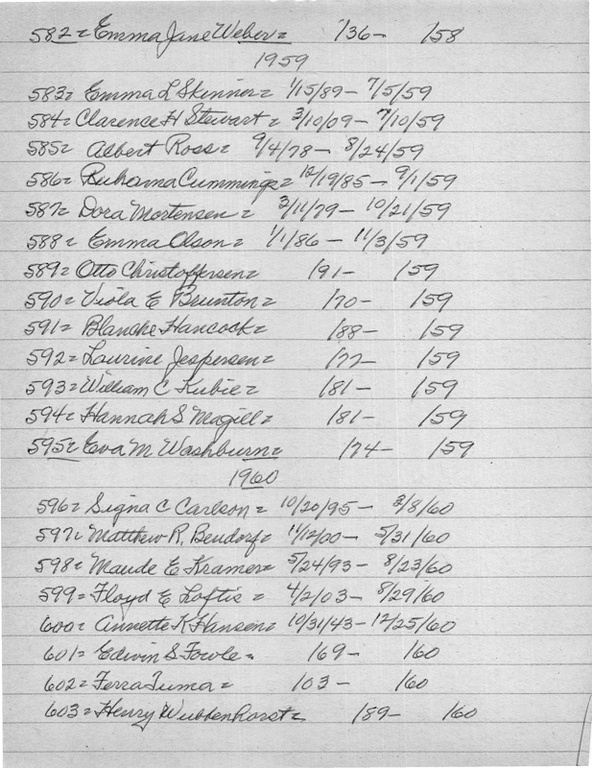 582 = Emma Jane Weber = /36 - /58
1959
583 = Emma L Skinner = 1/15/89 - 7/5/59
584 = Clarence H Stewart = 3/10/09 - 7/10/59
585 = Albert Ross = 9/4/78 - 8/24/59
586 = Ruhama Cummings = 12/19/85 - 9/1/59
587 = Dora Mortensen = 3/11/79 - 10/21/59
588 = Emma Olson = 1/1/86 - 11/3/59
589 = Otto Christoffersen = /91 - /59
590 = Viola E Brunton = /70 - /59
591 = Blanche Hancock = /88 - /59
592 = Laurine Jespersen = /77 - /59
593 = William C Kubie = /81 - /59
594 = Hannah S Magill = /81 - /59
595 = Eva M Washburn = /74 - /59
1960
596 = Signa C Carlson = 10/20/95 - 3/8/60
597 = Matthew R. Bendorf = 11/12/00 - 5/31/60
598 = Maude E Kramer = 5/24/93 - 8/23/60
599 = Floyd E Loftis = 4/2/03 - 8/29/60
600 = Annette K Hansen = 10/31/43 - 12/25/60
601 = Edwin S Fowle = /69 - /60
602 = Ferra Tuma = /03 - /60
603 = Henry Wubbenhorst = /89 - /60